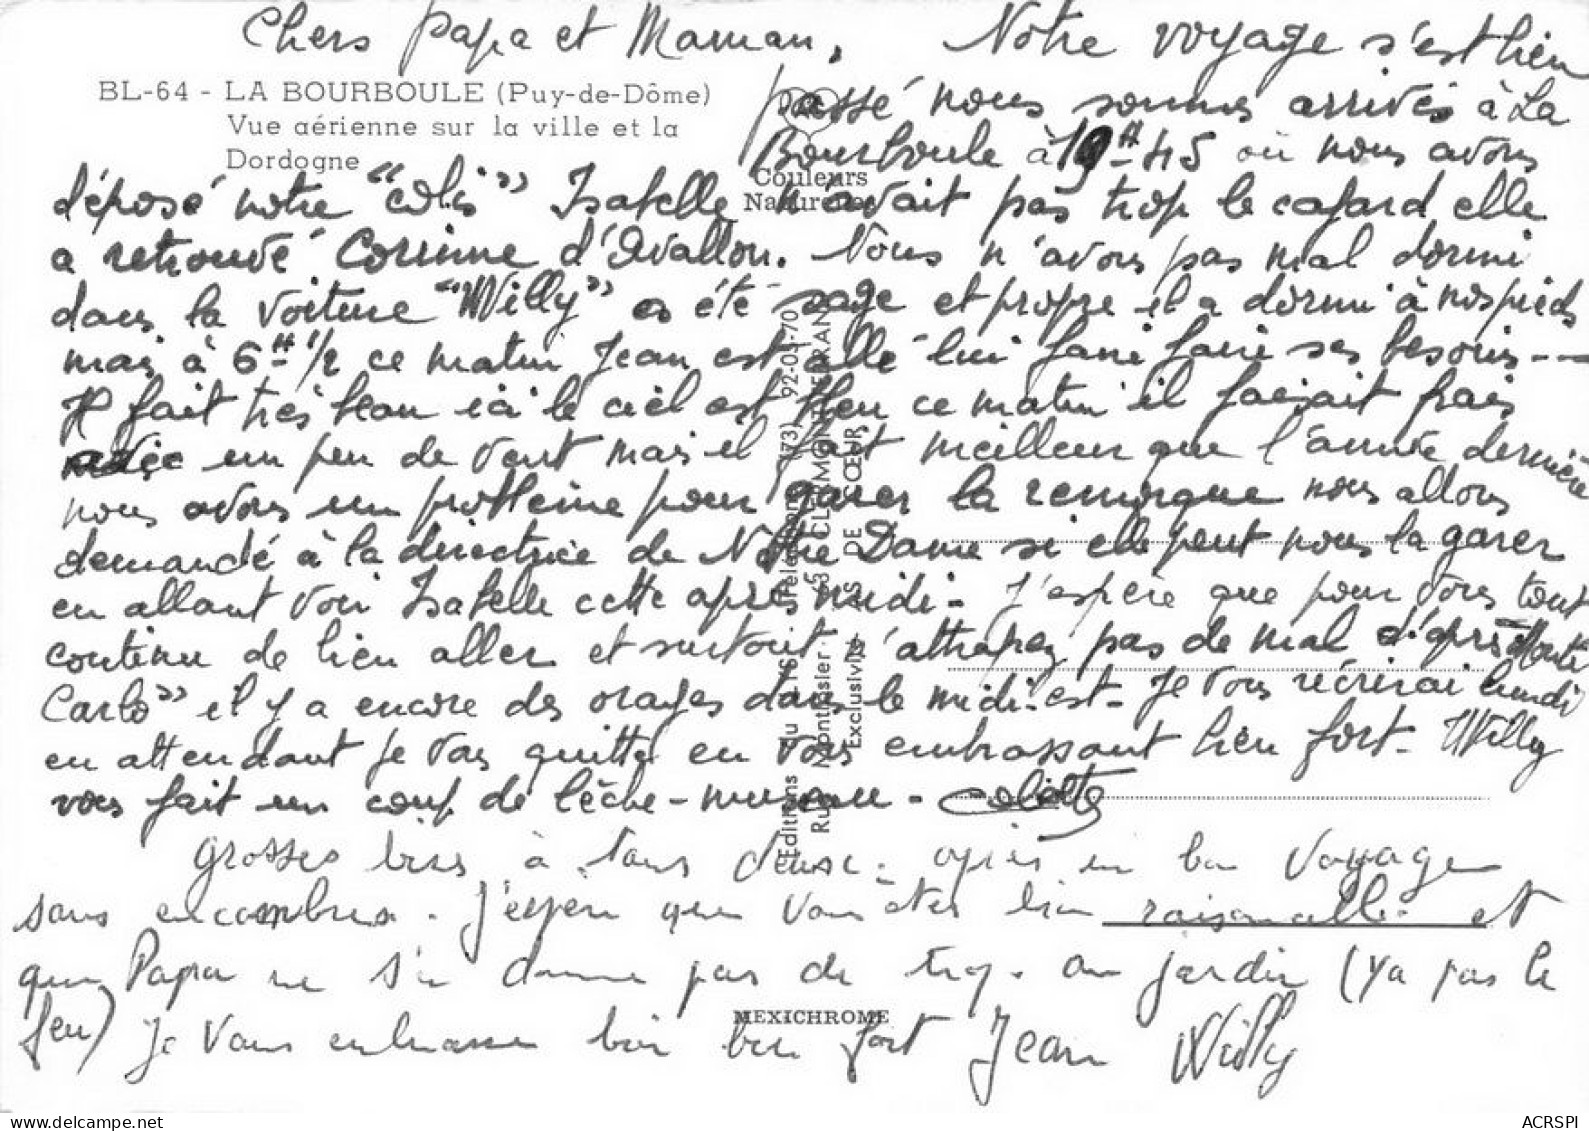 Chers Papa et Maman, Notre voyage s'est bien
BL-64 - LA BOURBOULE (Puy-de-Dôme)
Vue aérienne sur la ville et la
Dordogne
passé nous sommes arrivés à La
Bourboule à 19H 45 où nous avons
Couleurs
Naturelles
déposé notre "colis" Isabelle n'avait pas trop le cafard elle
a retrouvé Corinne d'Avallon. Nous n'avons pas mal dormi
dans la voiture "Willy" a été sage et propre il a dormi à nos pieds
mais à 6H 1/2 ce matin Jean est allé lui faire faire ses besoins ---
Il fait très beau ici le ciel est bleu ce matin il faisait frais
avec un peu de vent mais il fait meilleur que l'année dernière
nous avons un problème pour garer la remorque nous allons
demandé à la directrice de Notre Dame si elle peut nous la garer
en allant voir Isabelle cette après midi - J'espère que pour vous tout
continu de bien aller et surtout n'attrapez pas de mal d'après "Monte
Carlo" il y a encore des orages dans le midi-est - Je vous récrirai lundi
en attendant je vous quitte en vous embrassant bien fort - Willy
vous fait un coup de lèche-museau - Colette
Grosses bises à tous deux. après un bon voyage
sans encombres. J'espère que vous êtes bien raisonnables et
que Papa ne s'en donne pas de trop au jardin (Ya pas le
feu) Je vous embrasse bien bien fort Jean Willy
MEXICHROME
Editions du
92-05-70
Rue Montlosier
CLERMONT-FERRAND
Exclusivité
DE CŒUR
ACRSPI